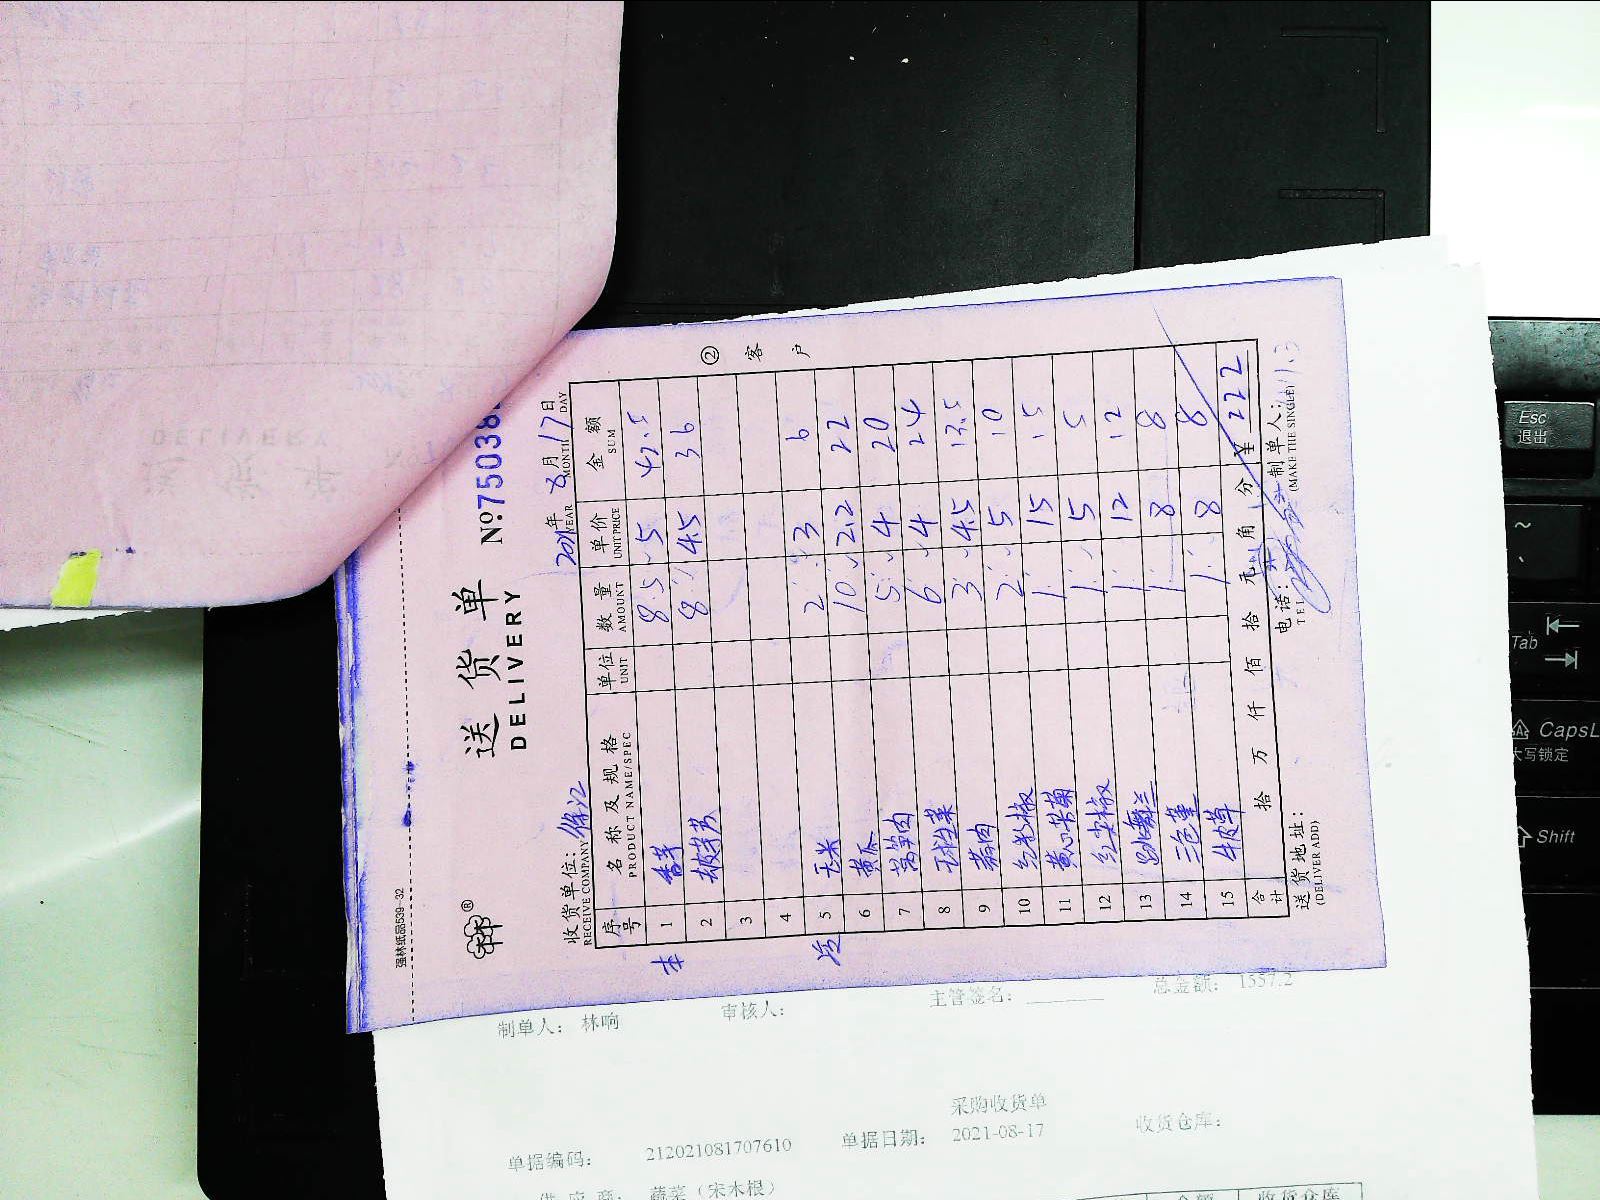 强林纸品539-32
送 货 单
DELIVERY
№75038
收货单位：
RECEIVE COMPANY
2021年 8月 17日
YEAR MONTH DAY
序号 名 称 及 规 格 单位 数 量 单 价 金 额
PRODUCT NAME/SPEC UNIT AMOUNT UNIT PRICE SUM
本 1 香芋 8.5 5 42.5
2 8 4.5 36
3
4
5 玉米 2 3 6
6 黄瓜 10 2.2 22
7 莴笋肉 5 4 20
8 毛球生菜 6 4 24
9 蒜肉 3 4.5 13.5
10 红彩椒 2 5 10
11 黄心菜菊 1 15 15
12 红尖椒 1 5 5
13 跳舞兰 1 12 12
14 三色堇 1 8 8
15 牛皮草 1 8 8
合计 拾 万 仟 佰 拾 元 角 分 ¥222
送 货 地 址：
(DELIVER ADD)
电 话：
TEL
制单人：
(MAKE THE SINGLE)
② 客 户
制单人： 林响
审核人：
主管签名：
总金额： 1557.2
采购收货单
单据编码： 212021081707610
单据日期： 2021-08-17
收货仓库：
供 应 商： 蔬菜（宋木根）
金额 收货仓库
Esc
退出
~
Tab
CapsL
大写锁定
Shift
DELIVERY